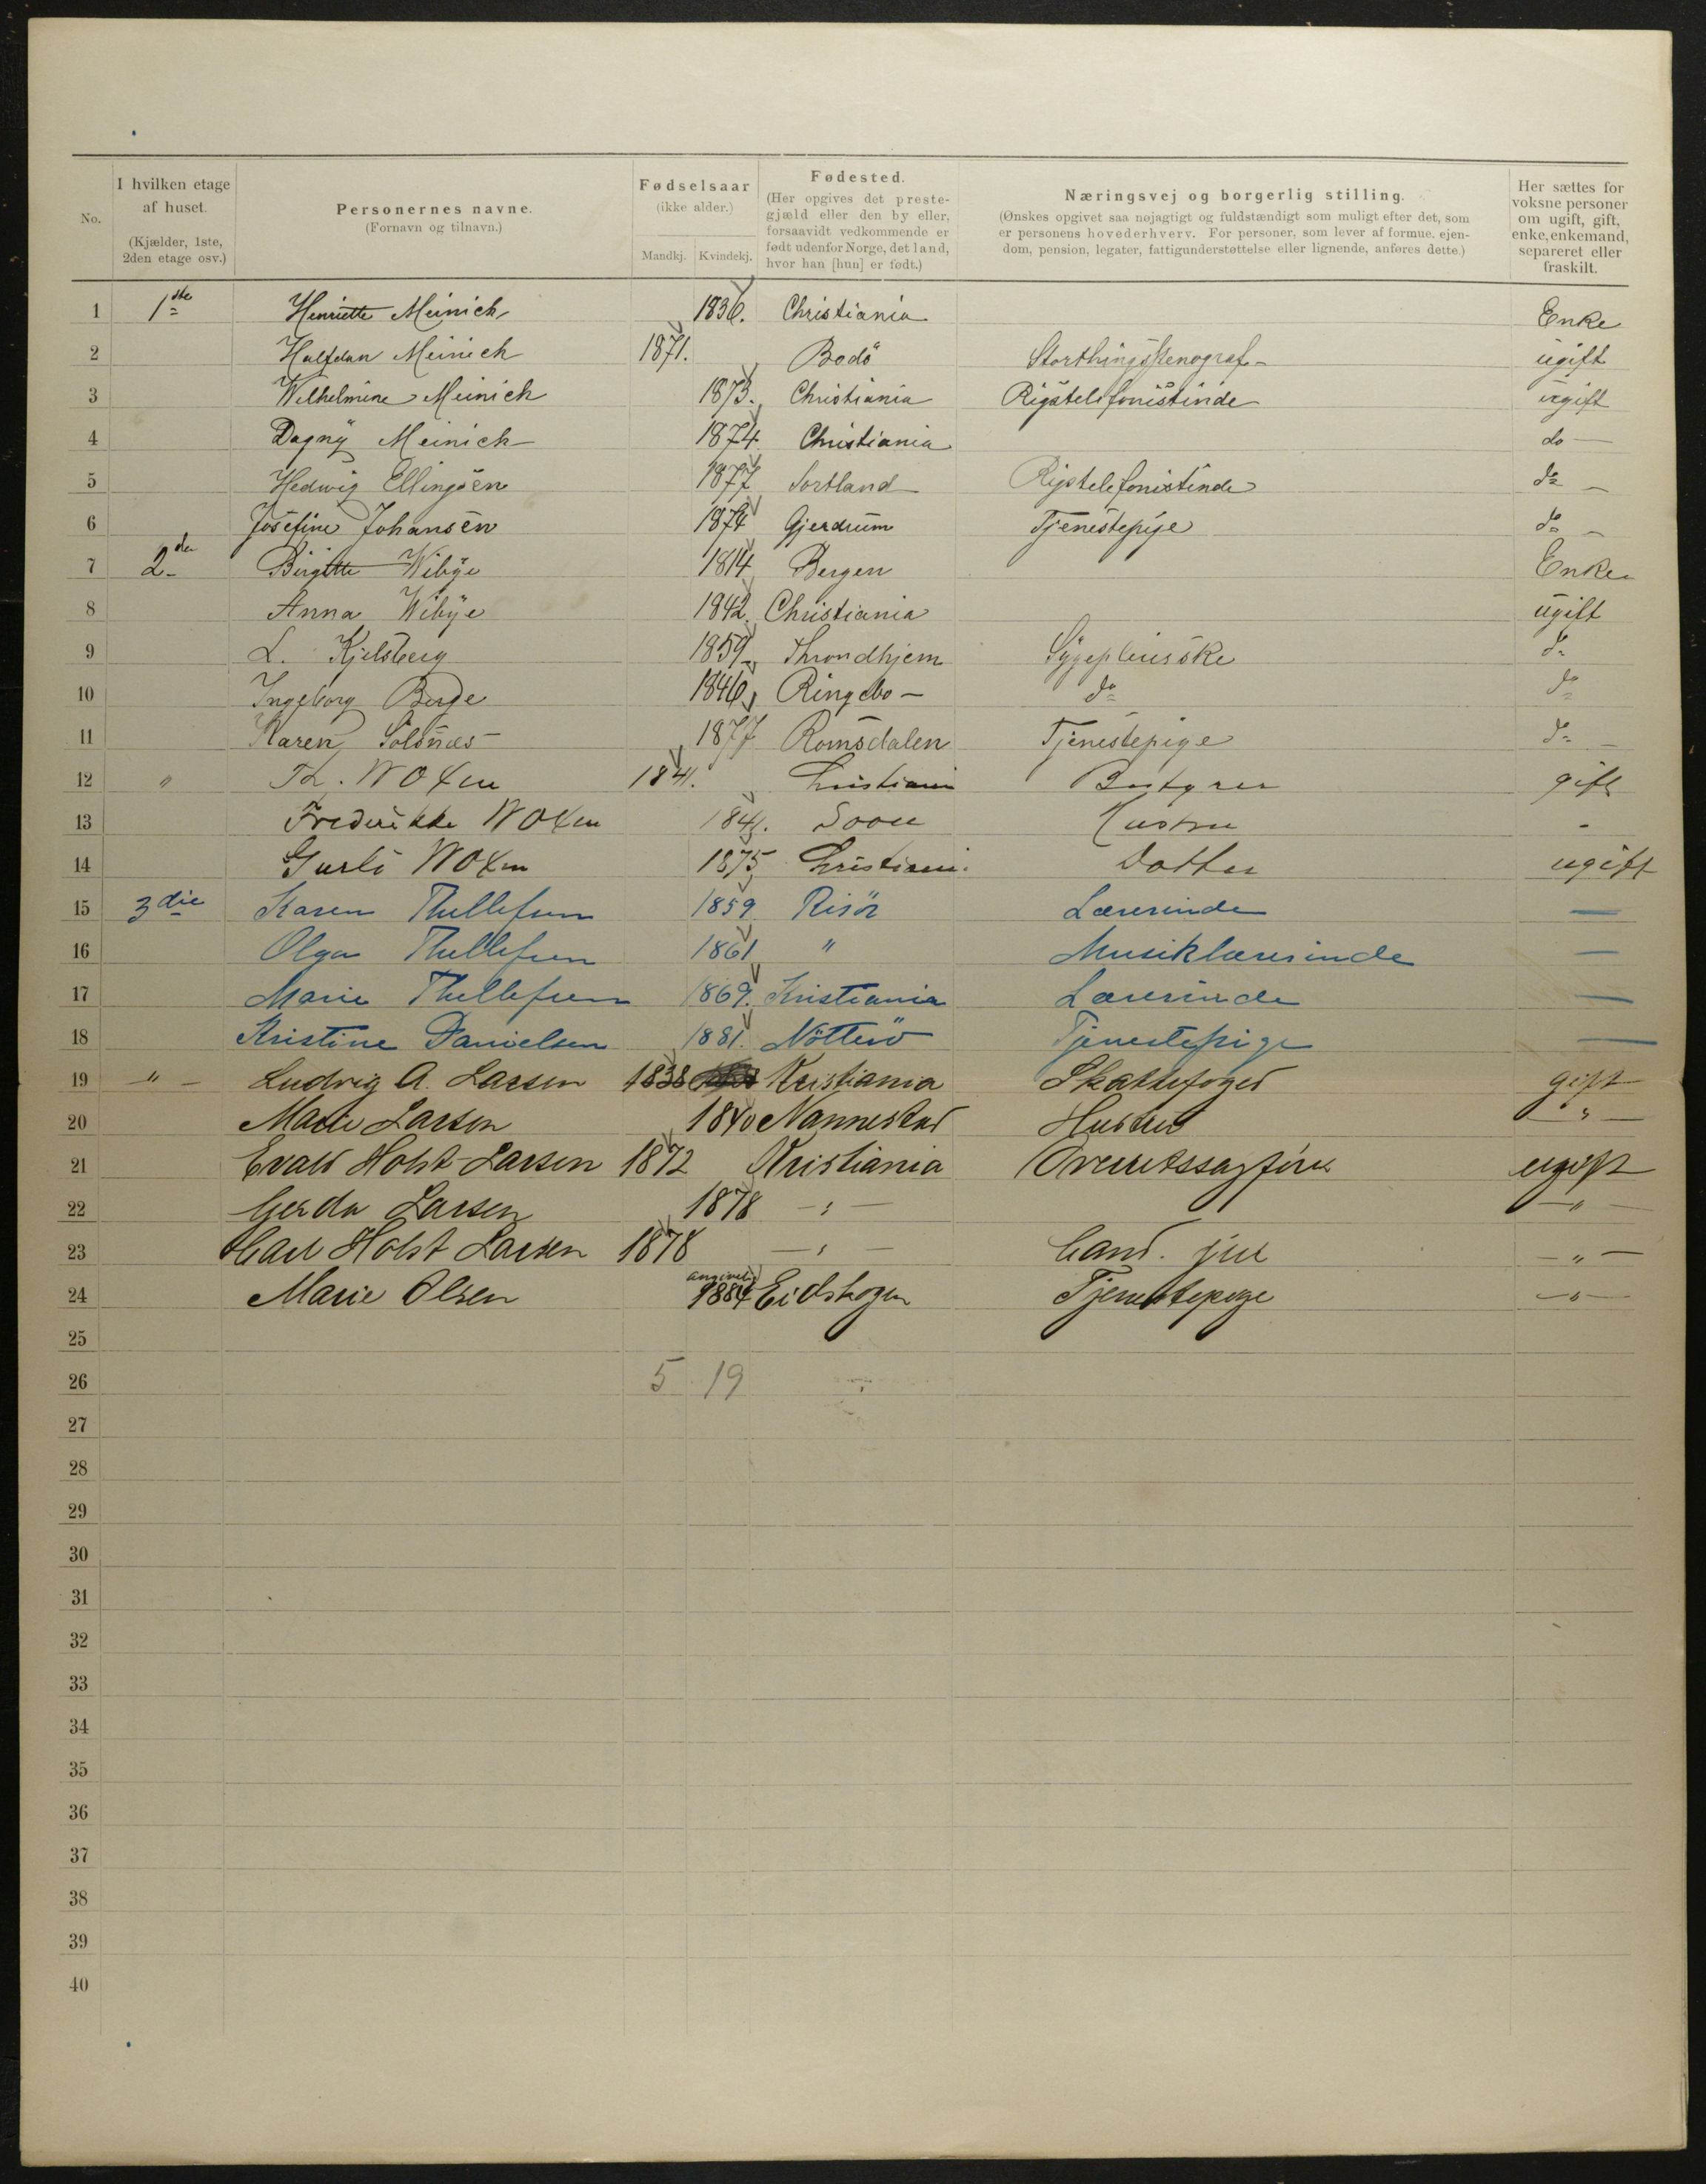 No. I hvilken etage af huset. (Kjælder, 1ste, 2den etage osv.) Personernes navne. (Fornavn og tilnavn.) Fødselsaar (ikke alder.) Mandkj. Kvindekj. Fødested. (Her opgives det prestegjæld eller den by eller, forsaavidt vedkommende er født udenfor Norge, det land, hvor han [hun] er født.) Næringsvej og borgerlig stilling. (Ønskes opgivet saa nøjagtigt og fuldstændigt som muligt efter det, som er personens hovederhverv. For personer, som lever af formue, ejendom, pension, legater, fattigunderstøttelse eller lignende, anføres dette.) Her sættes for voksne personer om ugift, gift, enke, enkemand, separeret eller fraskilt.
1 1ste Henriette Meinich 1836. Christiania Enke
2 Halfdan Meinich 1871. Bodö Storthingsstenograf - ugift
3 Wilhelmine Meinich 1873. Christiania Rigstelefonistinde ugift
4 Dagny Meinich 1874 Christiania do —
5 Hedwig Ellingsen 1877 Sortland Rigstelefonistinde do —
6 Josefine Johansen 1874 Gjerdrum Tjenestepige do —
7 2den Birgitte Wibye 1814 Bergen Enke
8 Anna Wibye 1842. Christiania ugift
9 L. Kjelsberg 1859 Throndhjem Sygepleierske do
10 Ingeborg Berge 1846 Ringebo - do do
11 Karen Solsnæs 1877 Romsdalen Tjenestepige do —
12 " Th. Woxen 1841. Christiania Bestyrer gift
13 Frederikke Woxen 1841. Soon Hustru -
14 Gurli Woxen 1875 Christiania Datter ugift
15 3die Karen Thellefsen 1859 Risör Lærerinde —
16 Olga Thellefsen 1861 " Musiklærerinde —
17 Marie Thellefsen 1869. Kristiania Lærerinde —
18 Kristine Danielsen 1881. Nötterö Tjenestepige —
19 " - Ludvig A. Larsen 1838 Kristiania Skattefoged gift
20 Marie Larsen 1840 Nannestad Hustru " —
21 Evald Holst-Larsen 1872 Kristiania Overretssagförer ugift
22 Gerda Larsen 1878 — " — — " —
23 Carl Holst Larsen 1878 — " — Cand. jur — " —
24 Marie Olsen angivelig 1884 Eidskogen Tjenestepige — " —
25
26 5 19
27
28
29
30
31
32
33
34
35
36
37
38
39
40